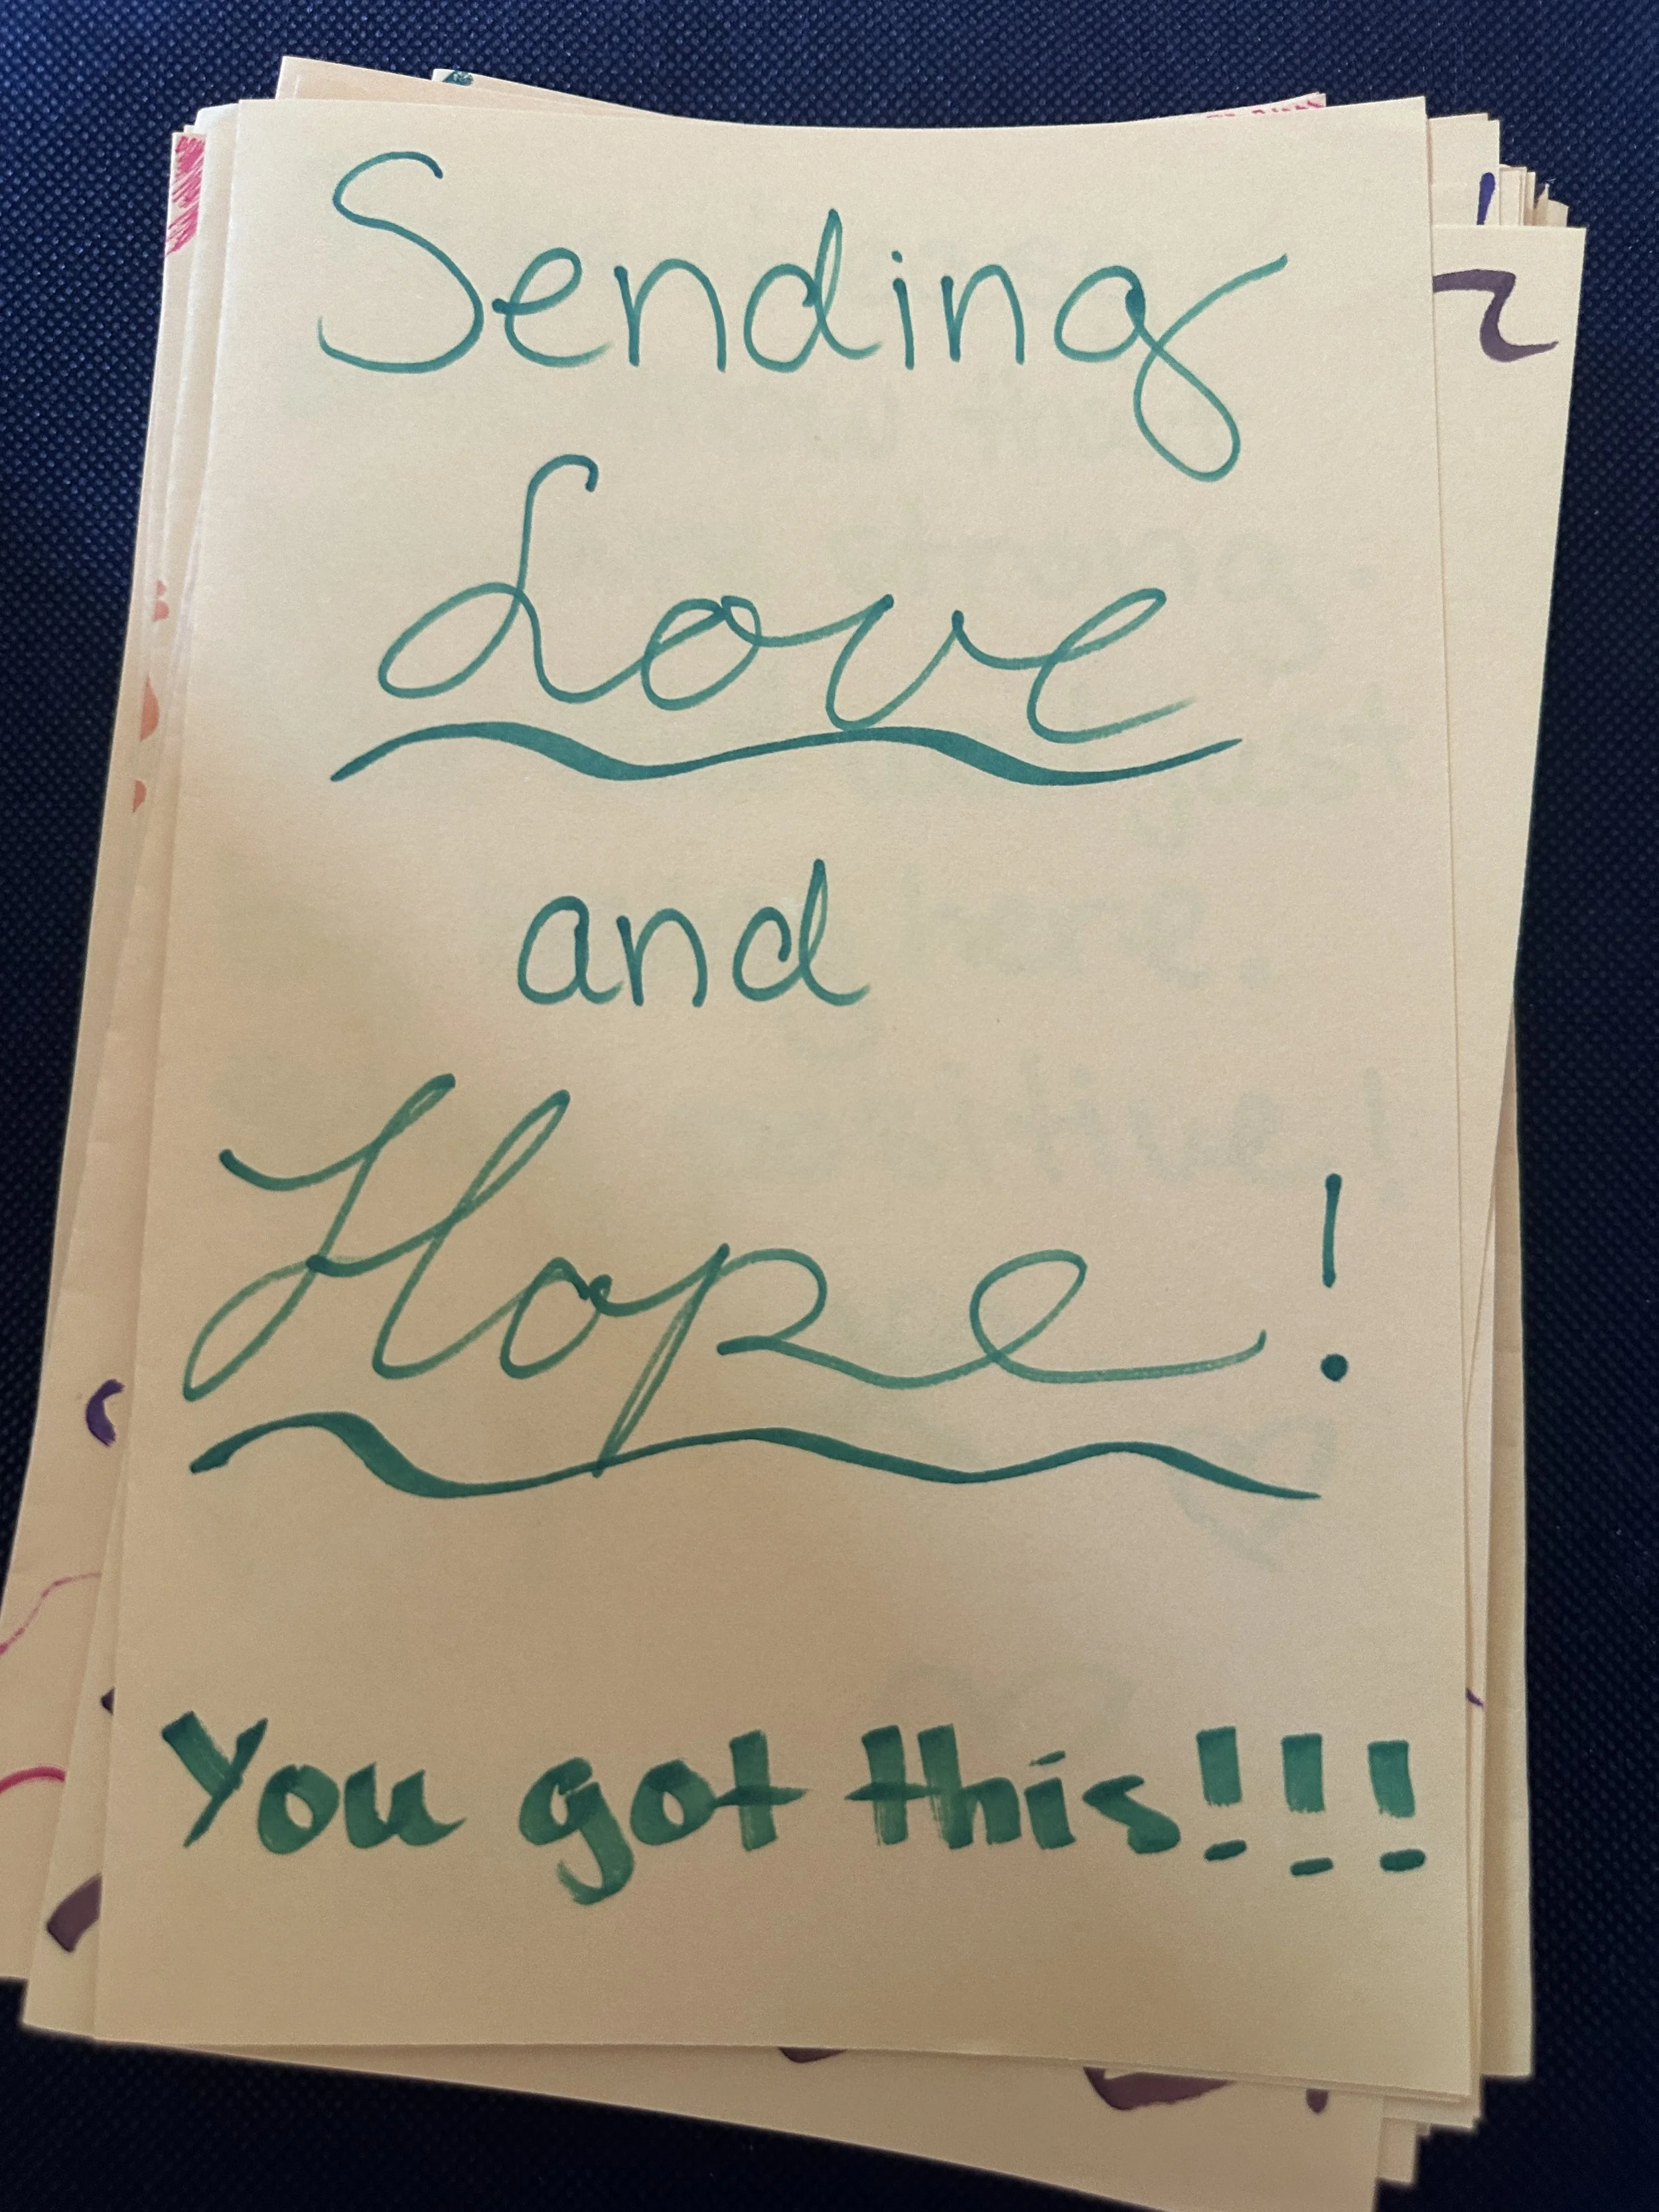 Sending
Love
and
Hope!
You got this!!!